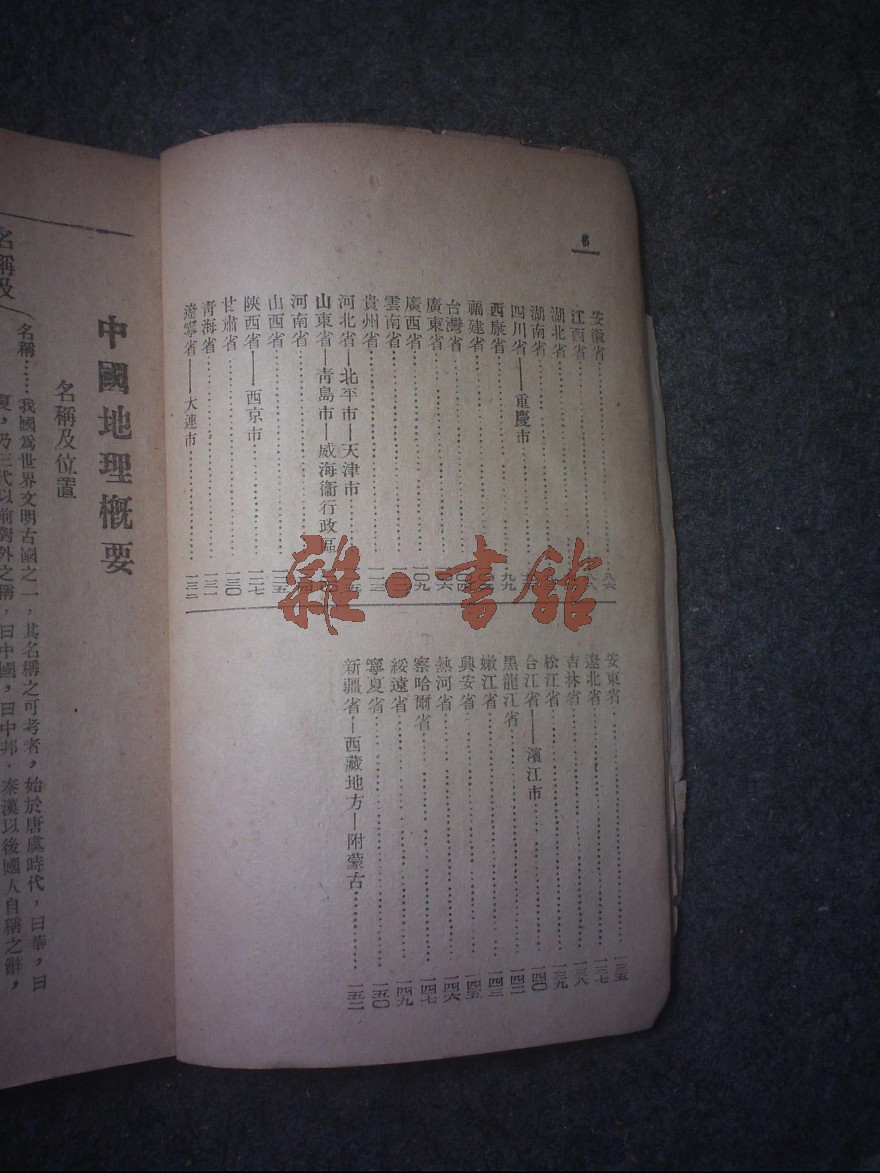 6
安徽省
江西省
湖北省
湖南省
四川省——重慶市
西康省 九九
福建省
台灣省
廣東省 一〇六
廣西省 一〇九
雲南省
貴州省 一一三
河北省—北平市—天津市
山東省—青島市—威海衞行政區
河南省
山西省 一二五
陝西省——西京市 一二七
甘肅省 一三〇
青海省 一三一
遼寧省——大連市 一三二
安東省 一三五
遼北省 一三七
吉林省 一三八
松江省 一三九
合江省——濱江市 一四〇
黑龍江省 一四二
嫩江省 一四三
興安省 一四五
熱河省 一四六
察哈爾省 一四七
綏遠省 一四九
寧夏省 一五〇
新疆省—西藏地方—附蒙古 一五二
雜·書館
中國地理概要
名稱及位置
名稱……我國爲世界文明古國之一，其名稱之可考者，始於唐虞時代，曰華，曰
夏，乃三代以前對外之稱，曰中國，曰中邦，秦漢以後國人自稱之辭，
名稱及